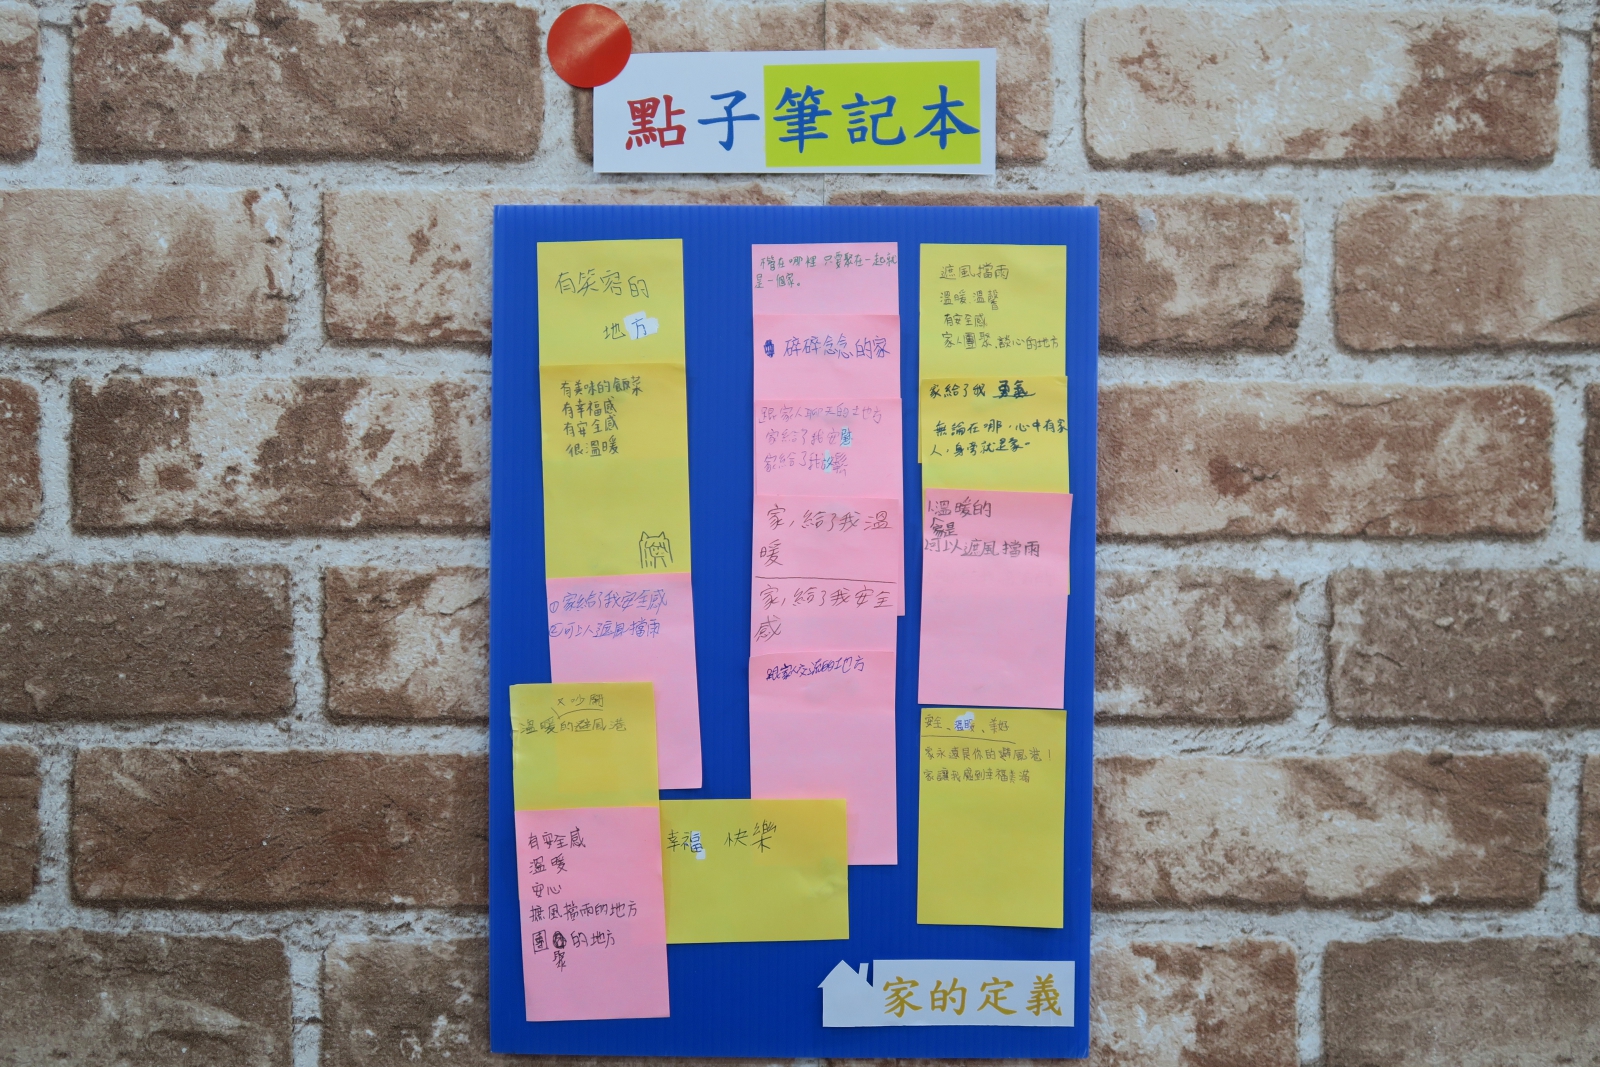 點子筆記本
有笑容的
地方
有美味的飯菜
有幸福感
有安全感
很溫暖
①家給了我安全感
②可以遮風擋雨
大吵鬧
溫暖的避風港
有安全感
溫暖
安心
摭風擋雨的地方
團 的地方
聚
幸福 快樂
不管在哪裡 只要聚在一起就
是一個家。
碎碎念念的家
跟家人聊天的地方
家給了我安慰
家給了我放鬆
家,給了我溫
暖
家,給了我安全
感
跟家人交流的地方
遮風擋雨
溫暖、溫馨
有安全感
家人團聚、談心的地方
家給了我 勇氣
無論在哪,心中有家
人,身旁就是家~
溫暖的
家是
可以遮風擋雨
安全、溫暖、美好
家永遠是你的避風港!
家讓我感到幸福美滿
家的定義